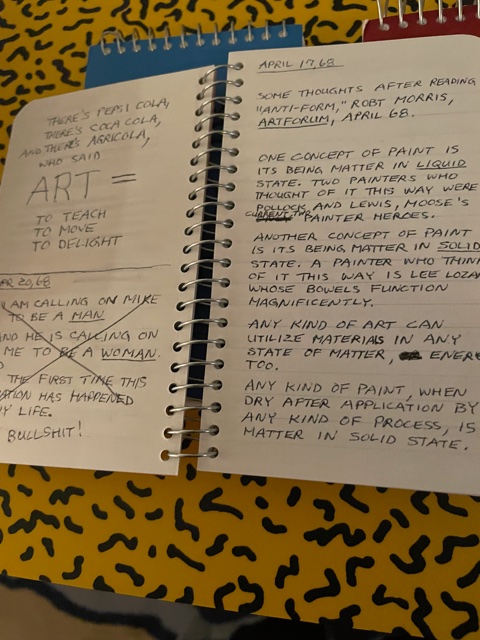 THERE'S PEPSI COLA,
THERE'S COCA COLA,
AND THERE'S AGRICOLA,
WHO SAID
ART =
TO TEACH
TO MOVE
TO DELIGHT
20,68
AM CALLING ON MIKE
TO BE A MAN
AND HE IS CALLING ON
ME TO BE A WOMAN.
THE FIRST TIME THIS
HAS HAPPENED
LIFE.
BULLSHIT!
APRIL 17,68
SOME THOUGHTS AFTER READING
"ANTI-FORM," ROBT MORRIS,
ARTFORUM, APRIL 68.
ONE CONCEPT OF PAINT IS
ITS BEING MATTER IN LIQUID
STATE. TWO PAINTERS WHO
THOUGHT OF IT THIS WAY WERE
POLLOCK, AND LEWIS, MOOSE'S
CURRENT TWO PAINTER HEROES.
ANOTHER CONCEPT OF PAINT
IS ITS BEING MATTER IN SOLID
STATE. A PAINTER WHO THINK
OF IT THIS WAY IS LEE LOZA
WHOSE BOWELS FUNCTION
MAGNIFICENTLY.
ANY KIND OF ART CAN
UTILIZE MATERIALS IN ANY
STATE OF MATTER, ENER
TOO.
ANY KIND OF PAINT, WHEN
DRY AFTER APPLICATION BY
ANY KIND OF PROCESS, IS
MATTER IN SOLID STATE.